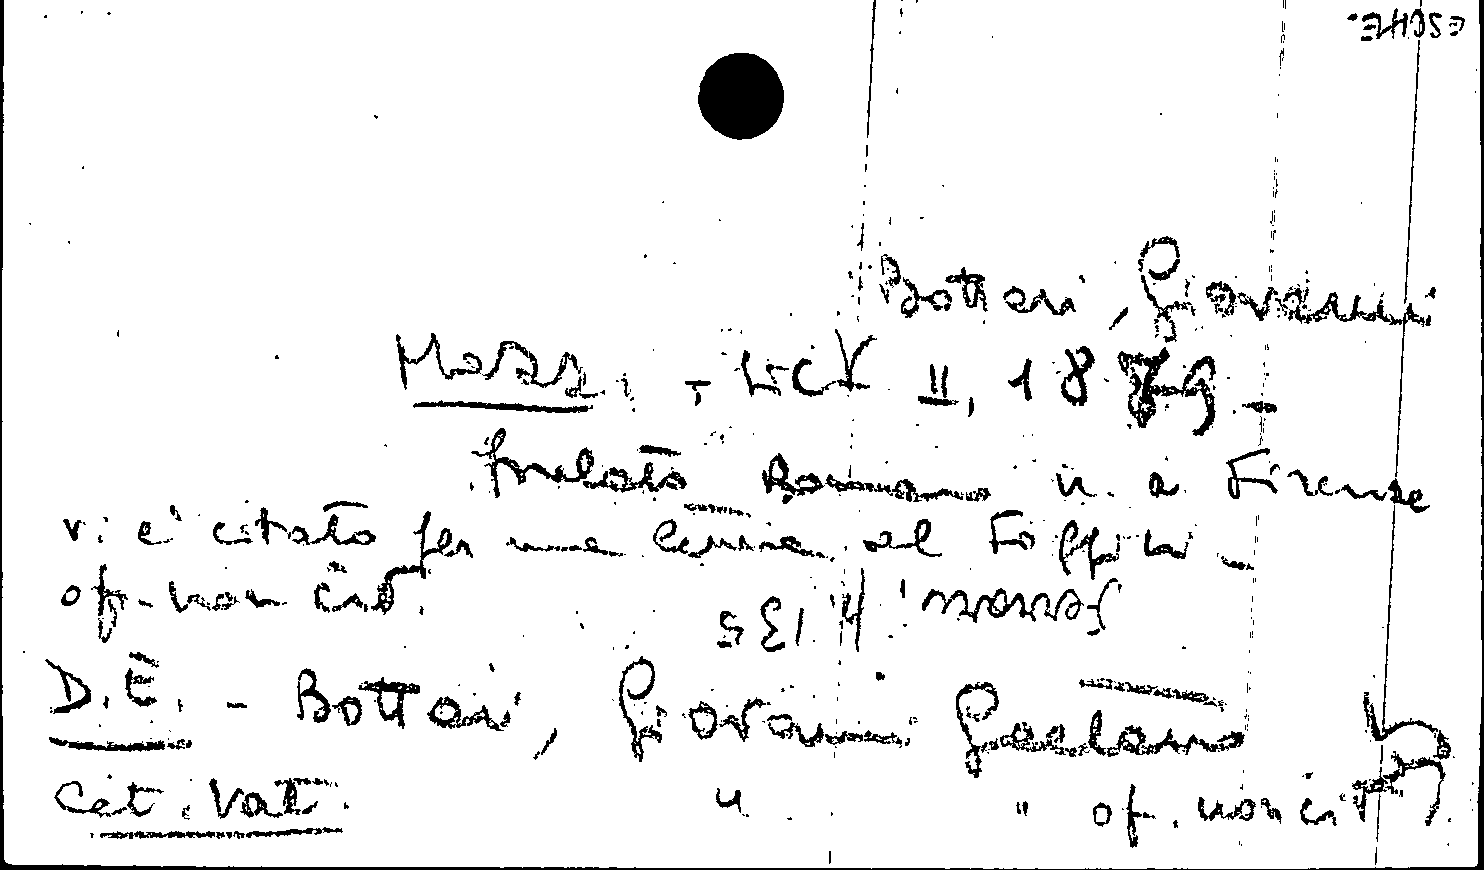 Bottari, Giovanni
Mazz. - II, 1879 -
Prelato Romano n. a Firenze
vi è citato per una lettera al Foppini -
op. non cit.
D.E. - Bottari, Giovanni Gaetano
Cat. Vat. " " op. non cit.